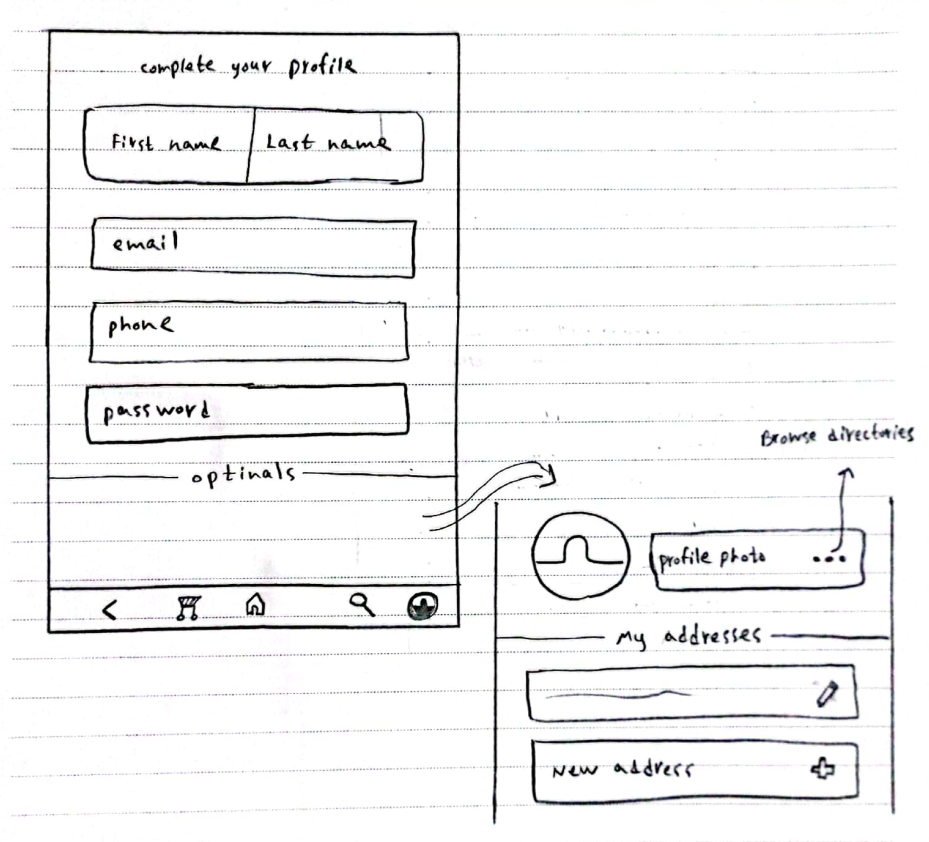 complete your profile
First name
Last name
email
phone
password
optinals
Browse directories
profile photo ...
My addresses
New address